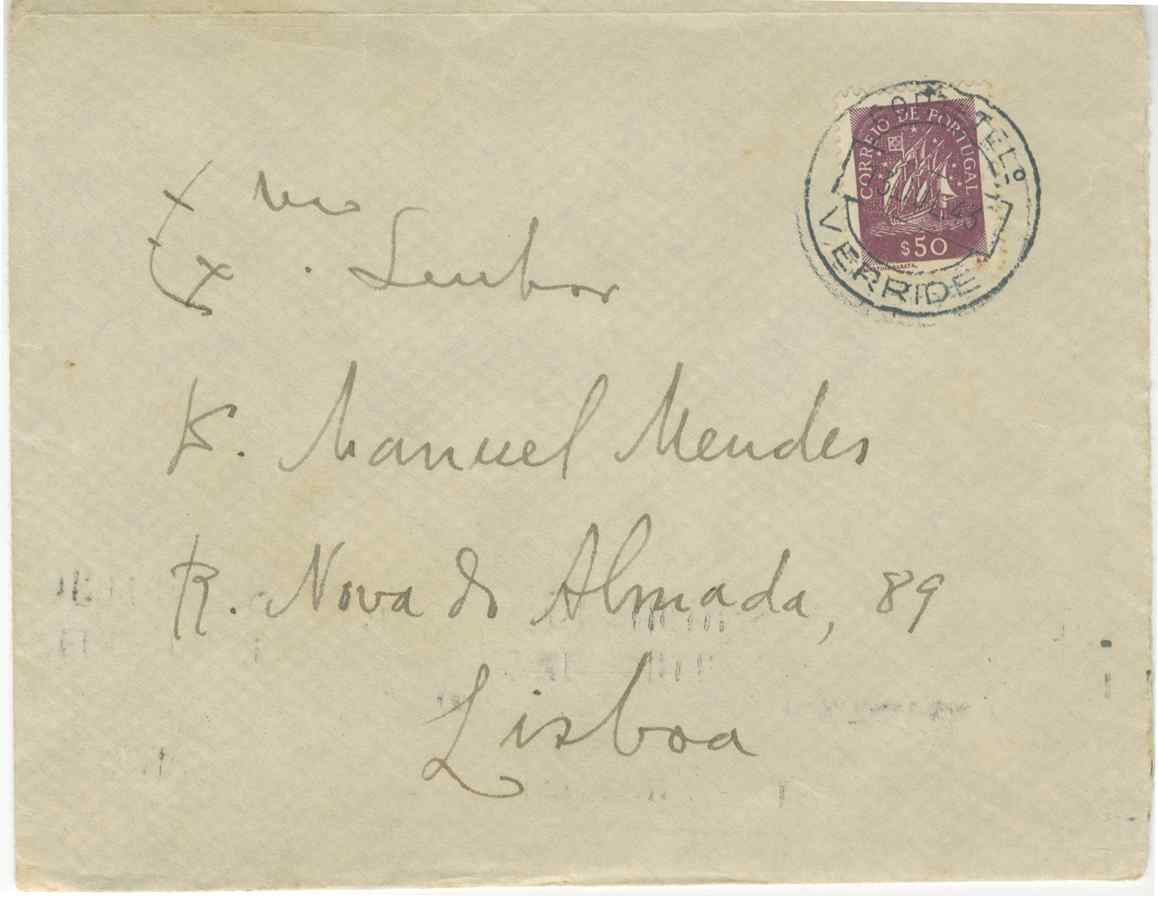 CORREIO DE PORTUGAL
$50
VERRIDE
Exmo Senhor
D. Manuel Mendes
R. Nova do Almada, 89
Lisboa